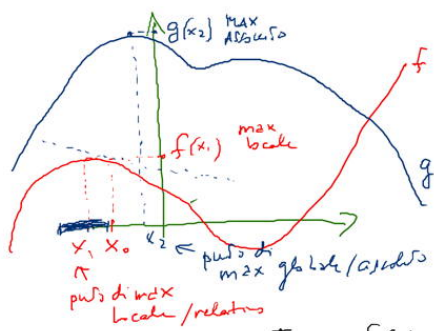 g(x₂) MAX
ASSOLUTO
f
f(x₁) max
locale
g
x₁ x₀ x₂
punto di
max globale/assoluto
punto di max
locale/relativo